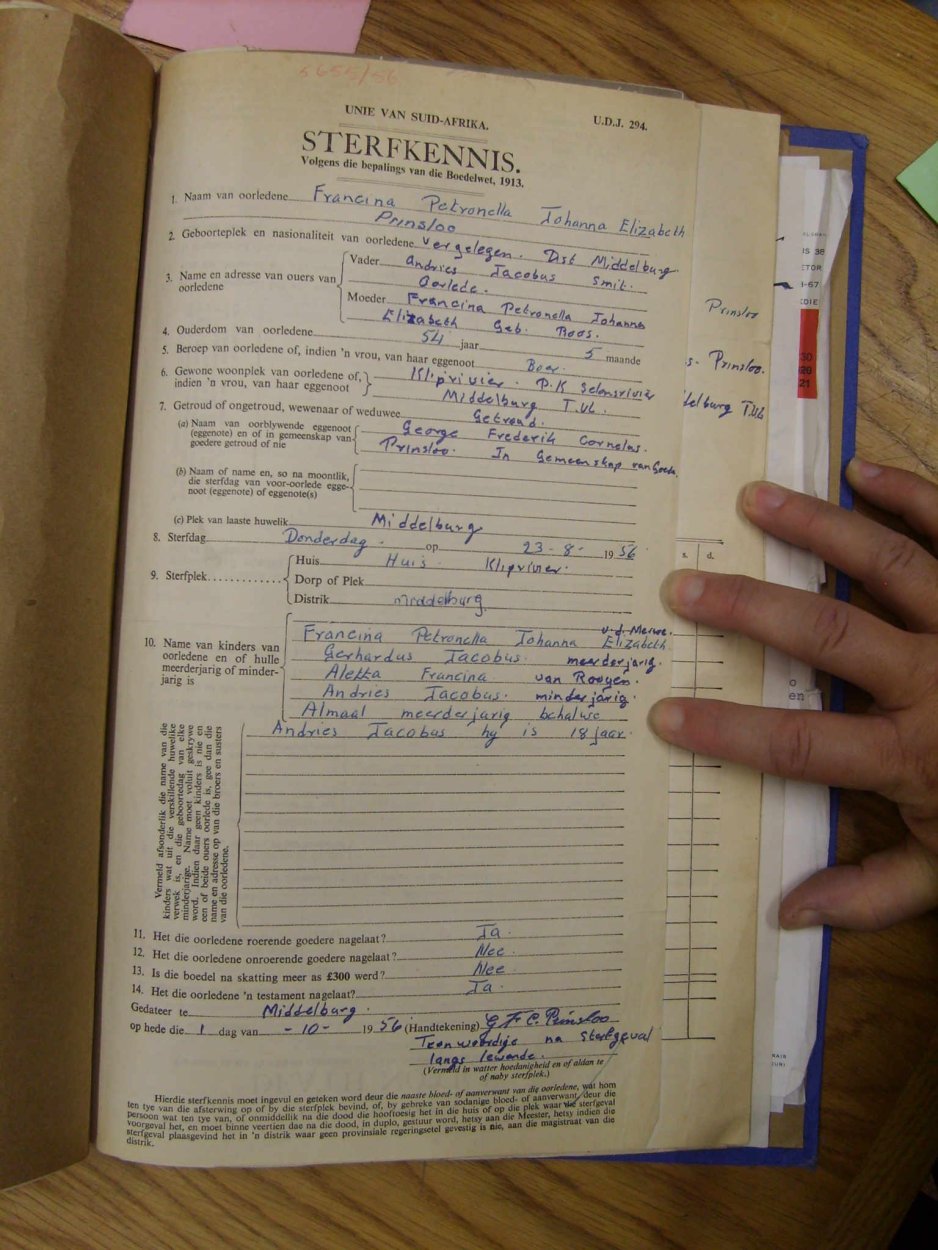 5655/56
UNIE VAN SUID-AFRIKA.
U.D.J. 294.
STERFKENNIS.
Volgens die bepalings van die Boedelwet, 1913.
1. Naam van oorledene Francina Petronella Johanna Elizabeth
Prinsloo
2. Geboorteplek en nasionaliteit van oorledene Vergelegen. Dist Middelburg
3. Name en adresse van ouers van oorledene
Vader Andries Jacobus Smit.
Oorlede.
Moeder Francina Petronella Johanna
Elizabeth Geb. Roos.
4. Ouderdom van oorledene 54 jaar 5 maande
5. Beroep van oorledene of, indien 'n vrou, van haar eggenoot Boer.
6. Gewone woonplek van oorledene of, indien 'n vrou, van haar eggenoot
Kliprivier. P.K Selonsrivier
Middelburg T.vl.
7. Getroud of ongetroud, wewenaar of weduwee Getroud.
(a) Naam van oorblywende eggenoot (eggenote) en of in gemeenskap van goedere getroud of nie
George Frederik Cornelus.
Prinsloo. In Gemeenskap van Goede.
(b) Naam of name en, so na moontlik, die sterfdag van voor-oorlede eggenoot (eggenote) of eggenote(s)
(c) Plek van laaste huwelik Middelburg
8. Sterfdag Donderdag. op 23-8- 1956
9. Sterfplek
Huis Huis. Kliprivier.
Dorp of Plek
Distrik middelburg
10. Name van kinders van oorledene en of hulle meerderjarig of minderjarig is
v.d. Merwe.
Francina Petronella Johanna Elizabeth
Gerhardus Jacobus. meerderjarig.
Aletta Francina van Rooyen.
Andries Jacobus. minderjarig.
Almaal meerderjarig behalwe
Andries Jacobus hy is 18 jaar.
Vermeld afsonderlik die name van die
kinders wat uit die verskillende huwelike
verwek is, en die geboortedag van elke
minderjarige. Name moet voluit geskrywe
word. Indien daar geen kinders is nie en
een of beide ouers oorlede is, gee dan die
name en adresse op van die broers en susters
van die oorledene.
11. Het die oorledene roerende goedere nagelaat? Ja.
12. Het die oorledene onroerende goedere nagelaat? Nee.
13. Is die boedel na skatting meer as £300 werd? Nee.
14. Het die oorledene 'n testament nagelaat? Ja.
Gedateer te Middelburg.
op hede die 1 dag van -10- 1956 (Handtekening) G F C Prinsloo
Teenwoordige na Sterfgeval
langs lewende.
(Vermeld in watter hoedanigheid en of aldan te
of naby sterfplek.)
Hierdie sterfkennis moet ingevul en geteken word deur die naaste bloed- of aanverwant van die oorledene, wat hom
ten tye van die afsterwing op of by die sterfplek bevind, of, by gebreke van sodanige bloed- of aanverwant, deur die
persoon wat ten tye van, of onmiddellik na die dood die hooftoesig het in die huis of op die plek waar die sterfgeval
voorgeval het, en moet binne veertien dae na die dood, in duplo, gestuur word, hetsy aan die Meester, hetsy indien die
sterfgeval plaasgevind het in 'n distrik waar geen provinsiale regeringsetel gevestig is nie, aan die magistraat van die
distrik.
Prinsloo
s- Prinsloo.
delburg T.vl
s. d.